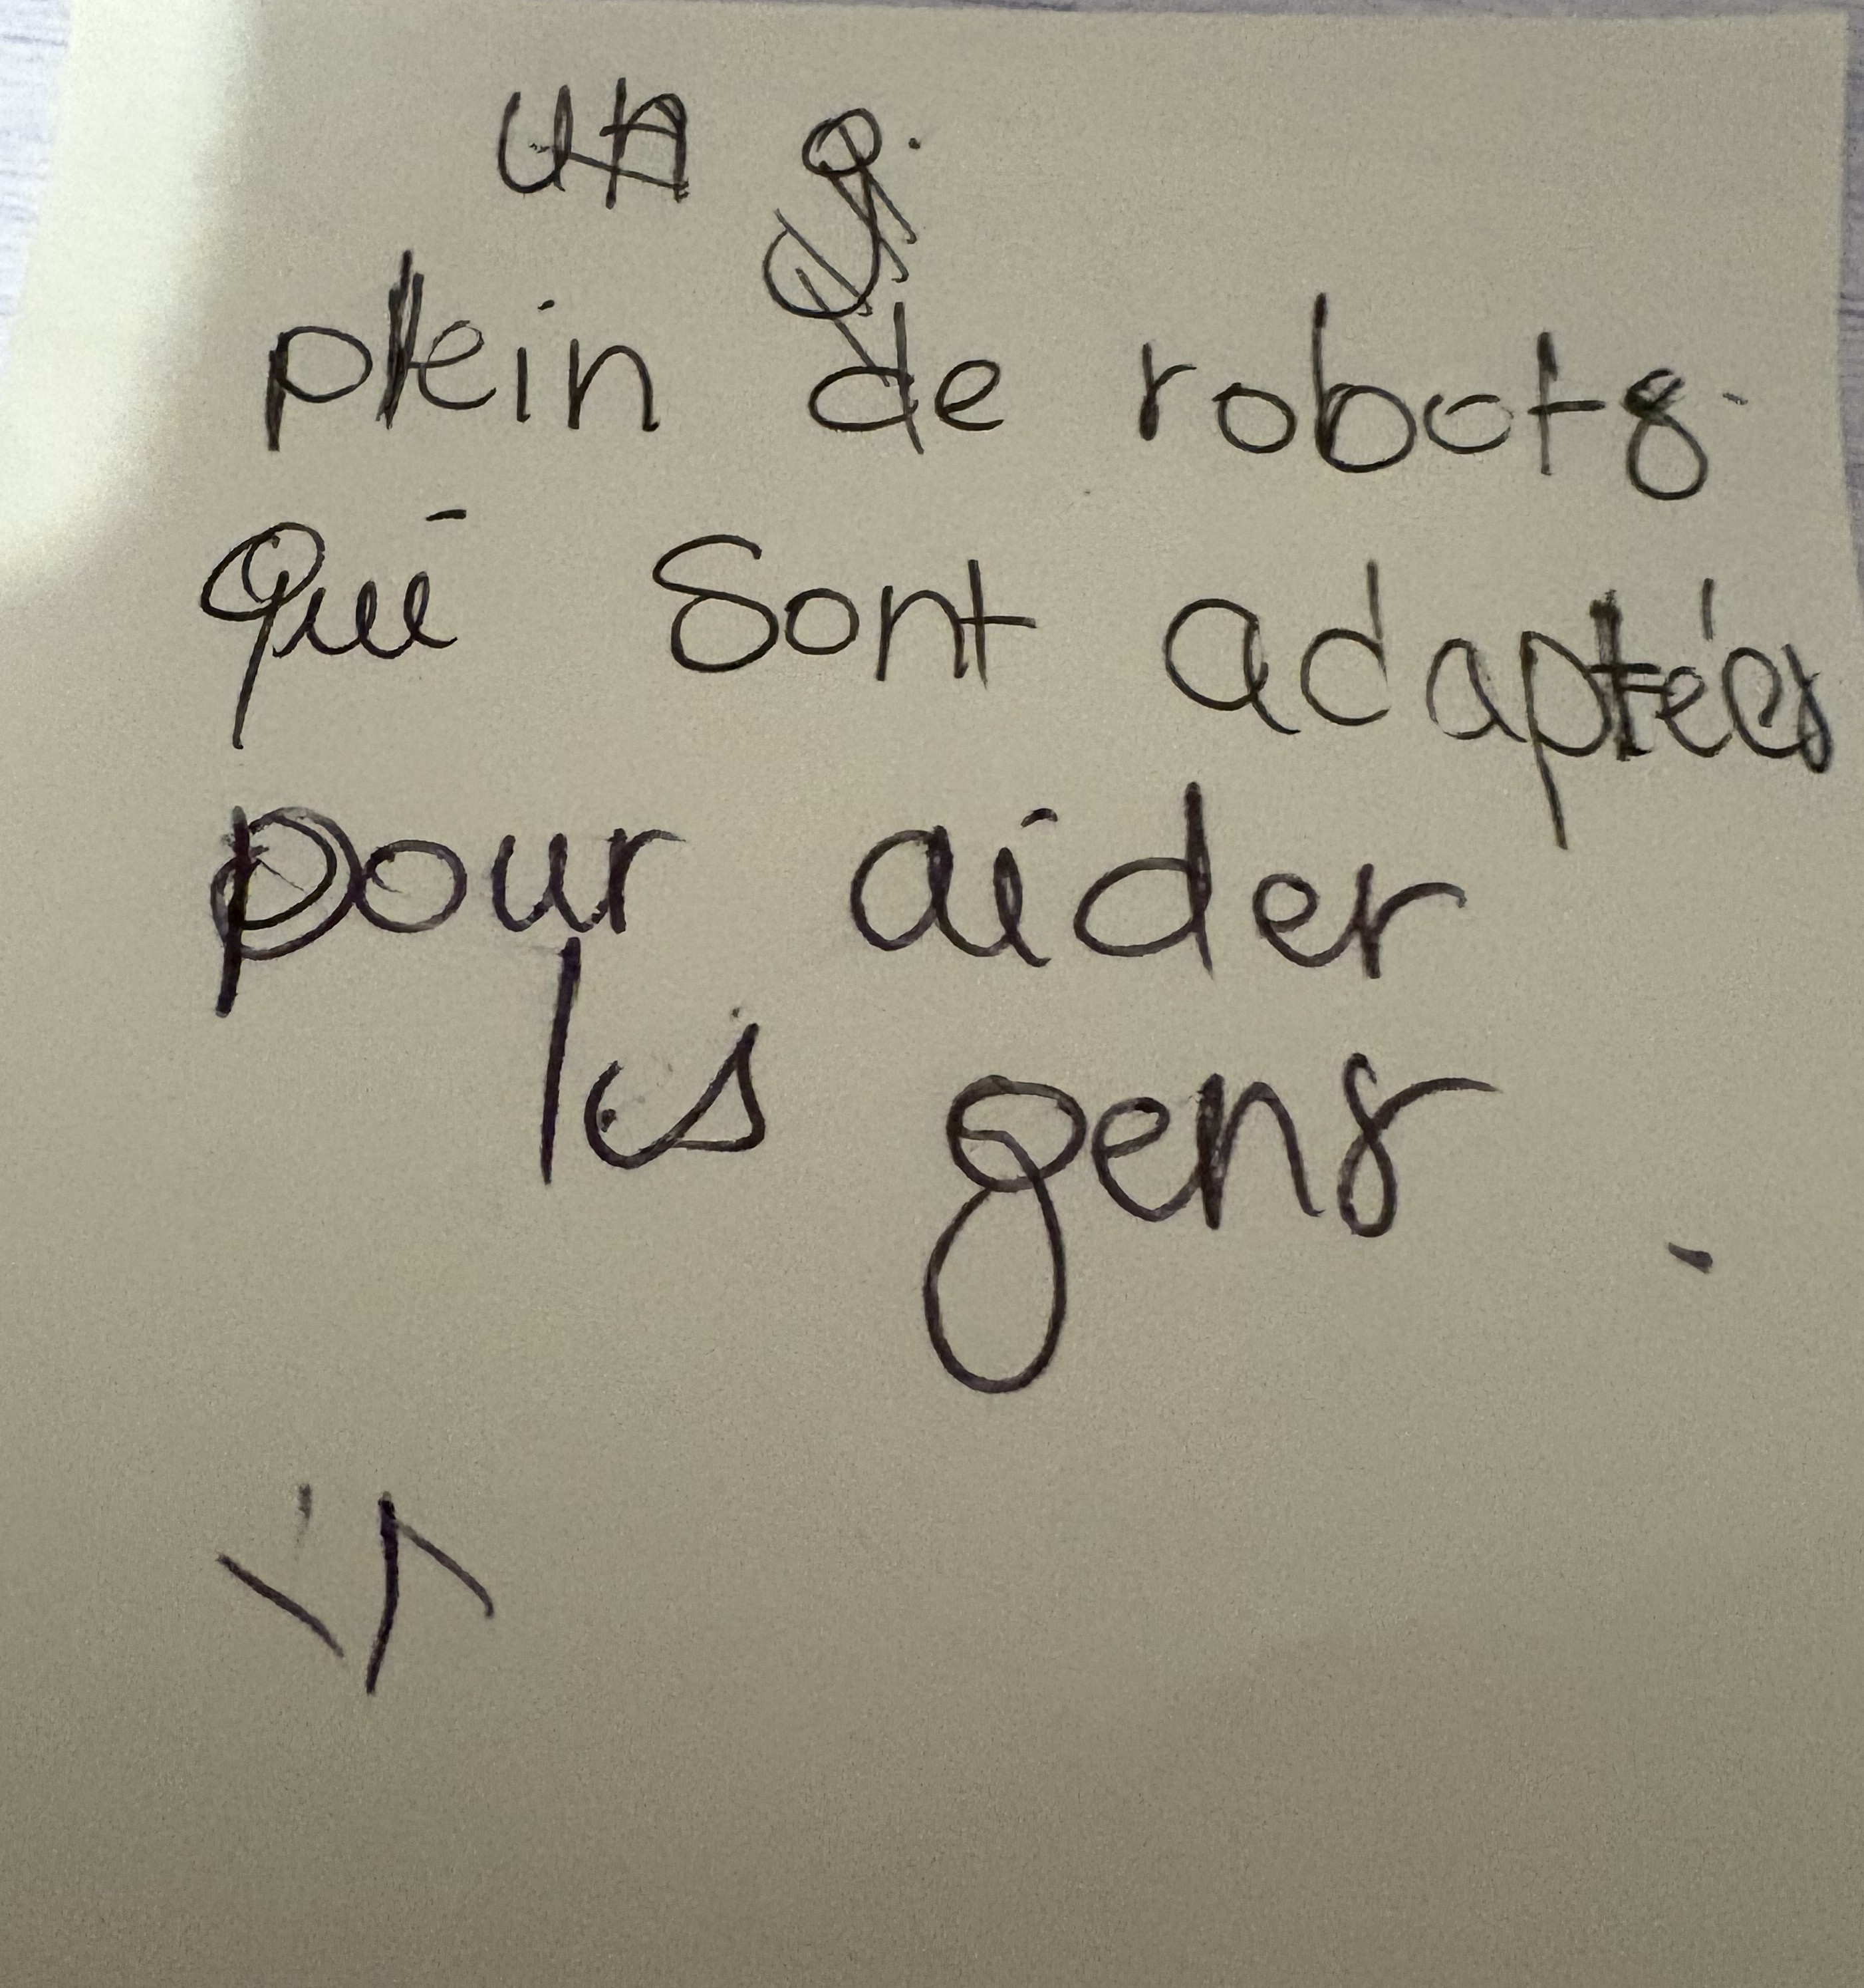 un
plein de robots
qui sont adaptées
pour aider
les gens